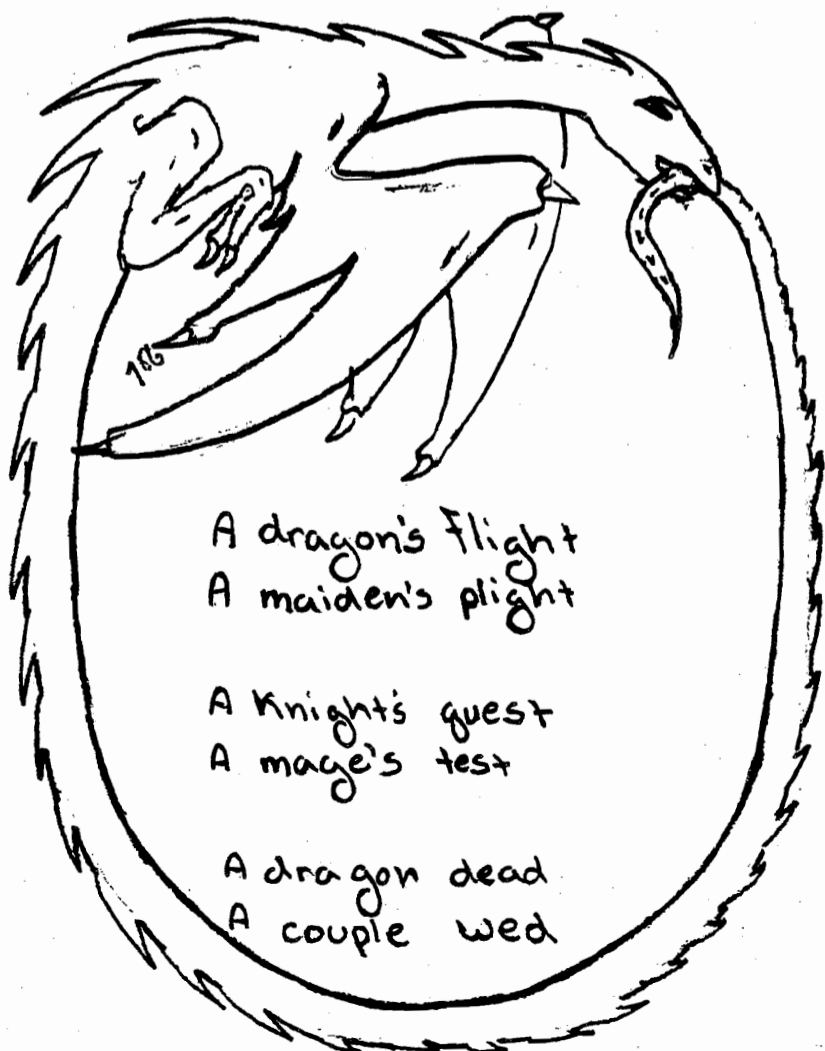 A dragon's flight
A maiden's plight
A Knight's quest
A mage's test
A dragon dead
A couple wed